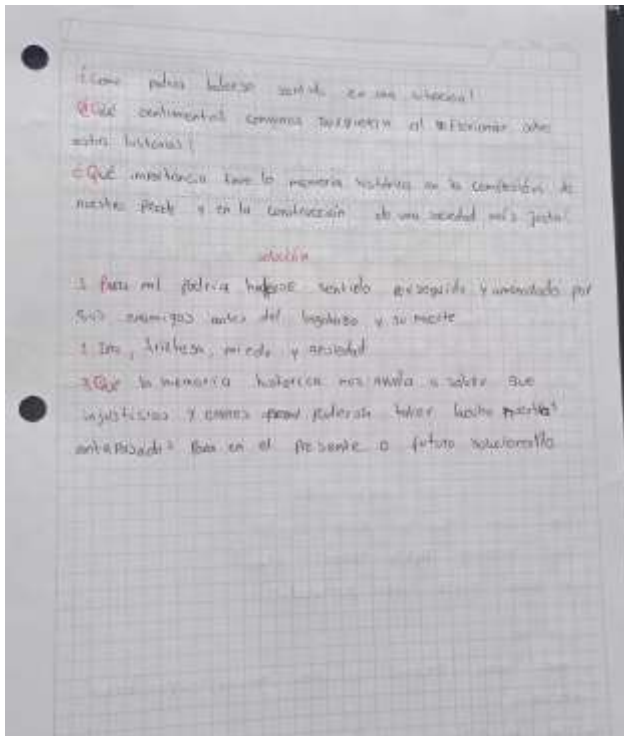 ¿Como podria haberse sentido en esa situacion?
¿Qué sentimientos comunes surgieron al reflexionar sobre
estas historias?
¿Qué importancia tiene la memoria histórica en la de
nuestro y en la construcción de una sociedad más justa?
solución
1 Para mi podria haberse sentido perseguido y amenazado por
sus enemigos antes del y su muerte
2 Ira, tristeza, miedo y ansiedad
3 Que la memoria historica nos ayuda a saber que
injusticias y pudieron haber hecho nuestros
antepasados Para en el presente o futuro solucionarlo